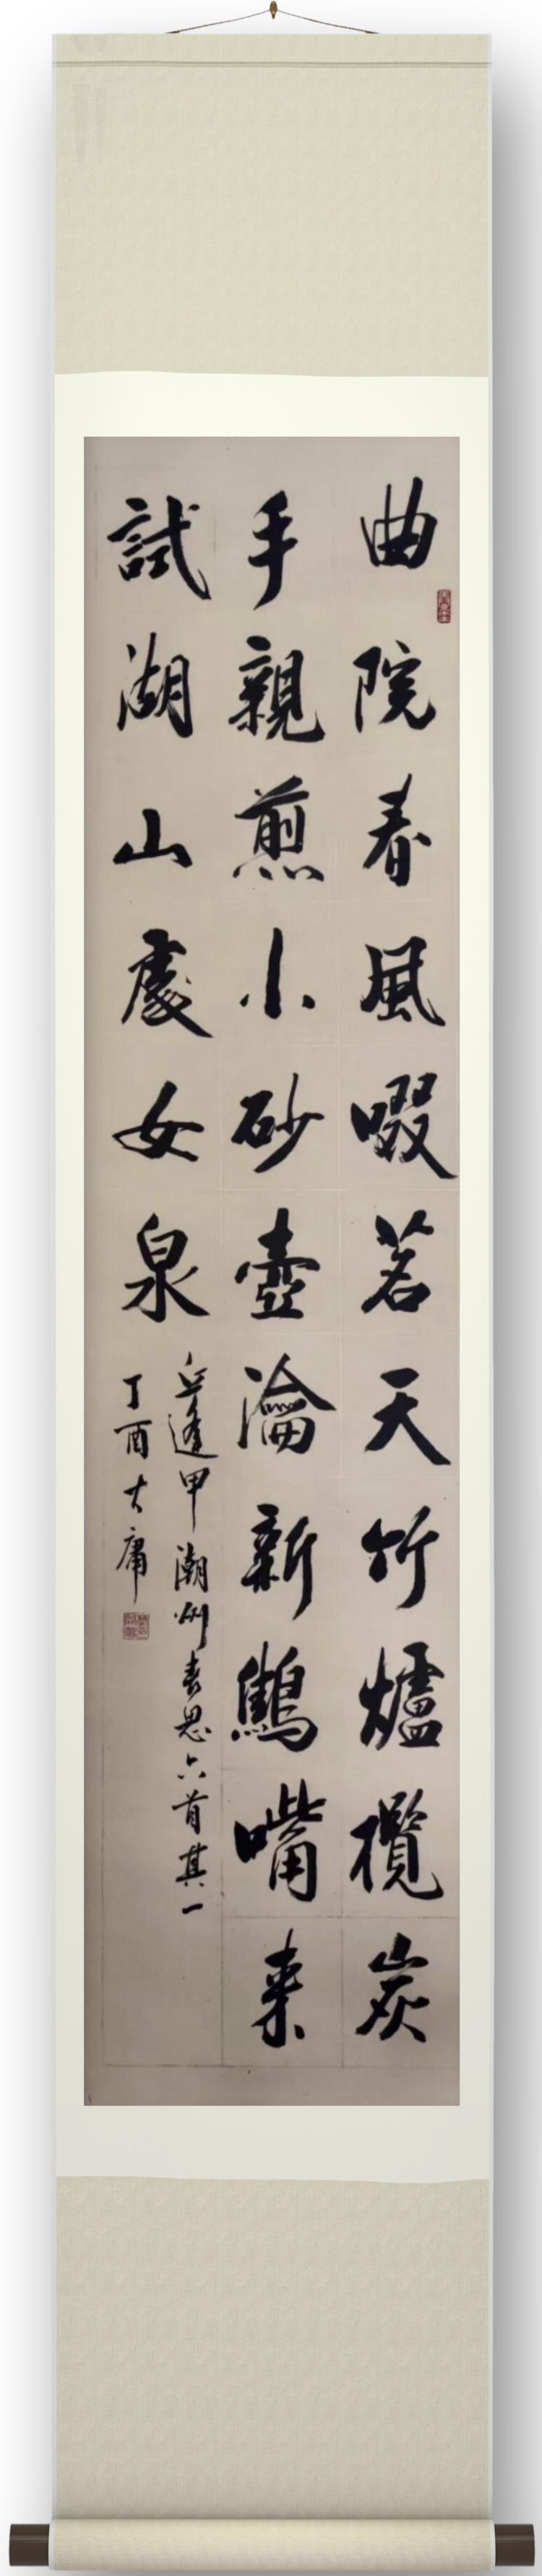 曲院春風啜茗天竹爐欖炭
手親煎小砂壺瀹新鷦嘴来
試湖山處女泉
丘逢甲潮州春思六首其一
丁酉大庸